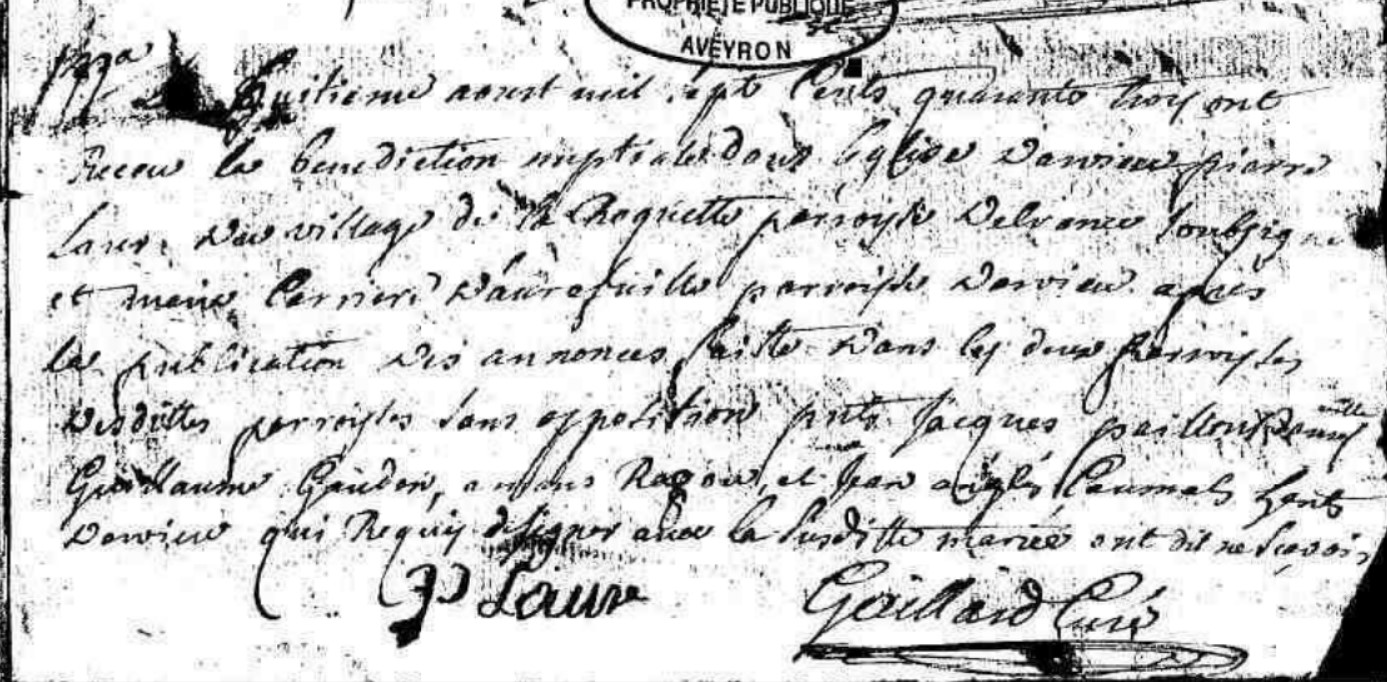 PROPRIÉTÉ PUBLIQUE
AVEYRON
huitieme aoust mil sept Cents quarante troy ont
Receu la benediction nuptiale dans leglise Darvieu pierre
Laur du village de la Roquette parroisse Delrance soubsigné
et marie Carriere parroisse Darvieu apres
la publication des annonces faitte dans les deux parroisses
desdittes parroisses sans opposition pnts Jacques
Guillaume Gaudon, amans et Jean habts
Darvieu qui Requis designer avec la susditte mariée ont dit ne scavoir
P Laur
Gaillard Curé